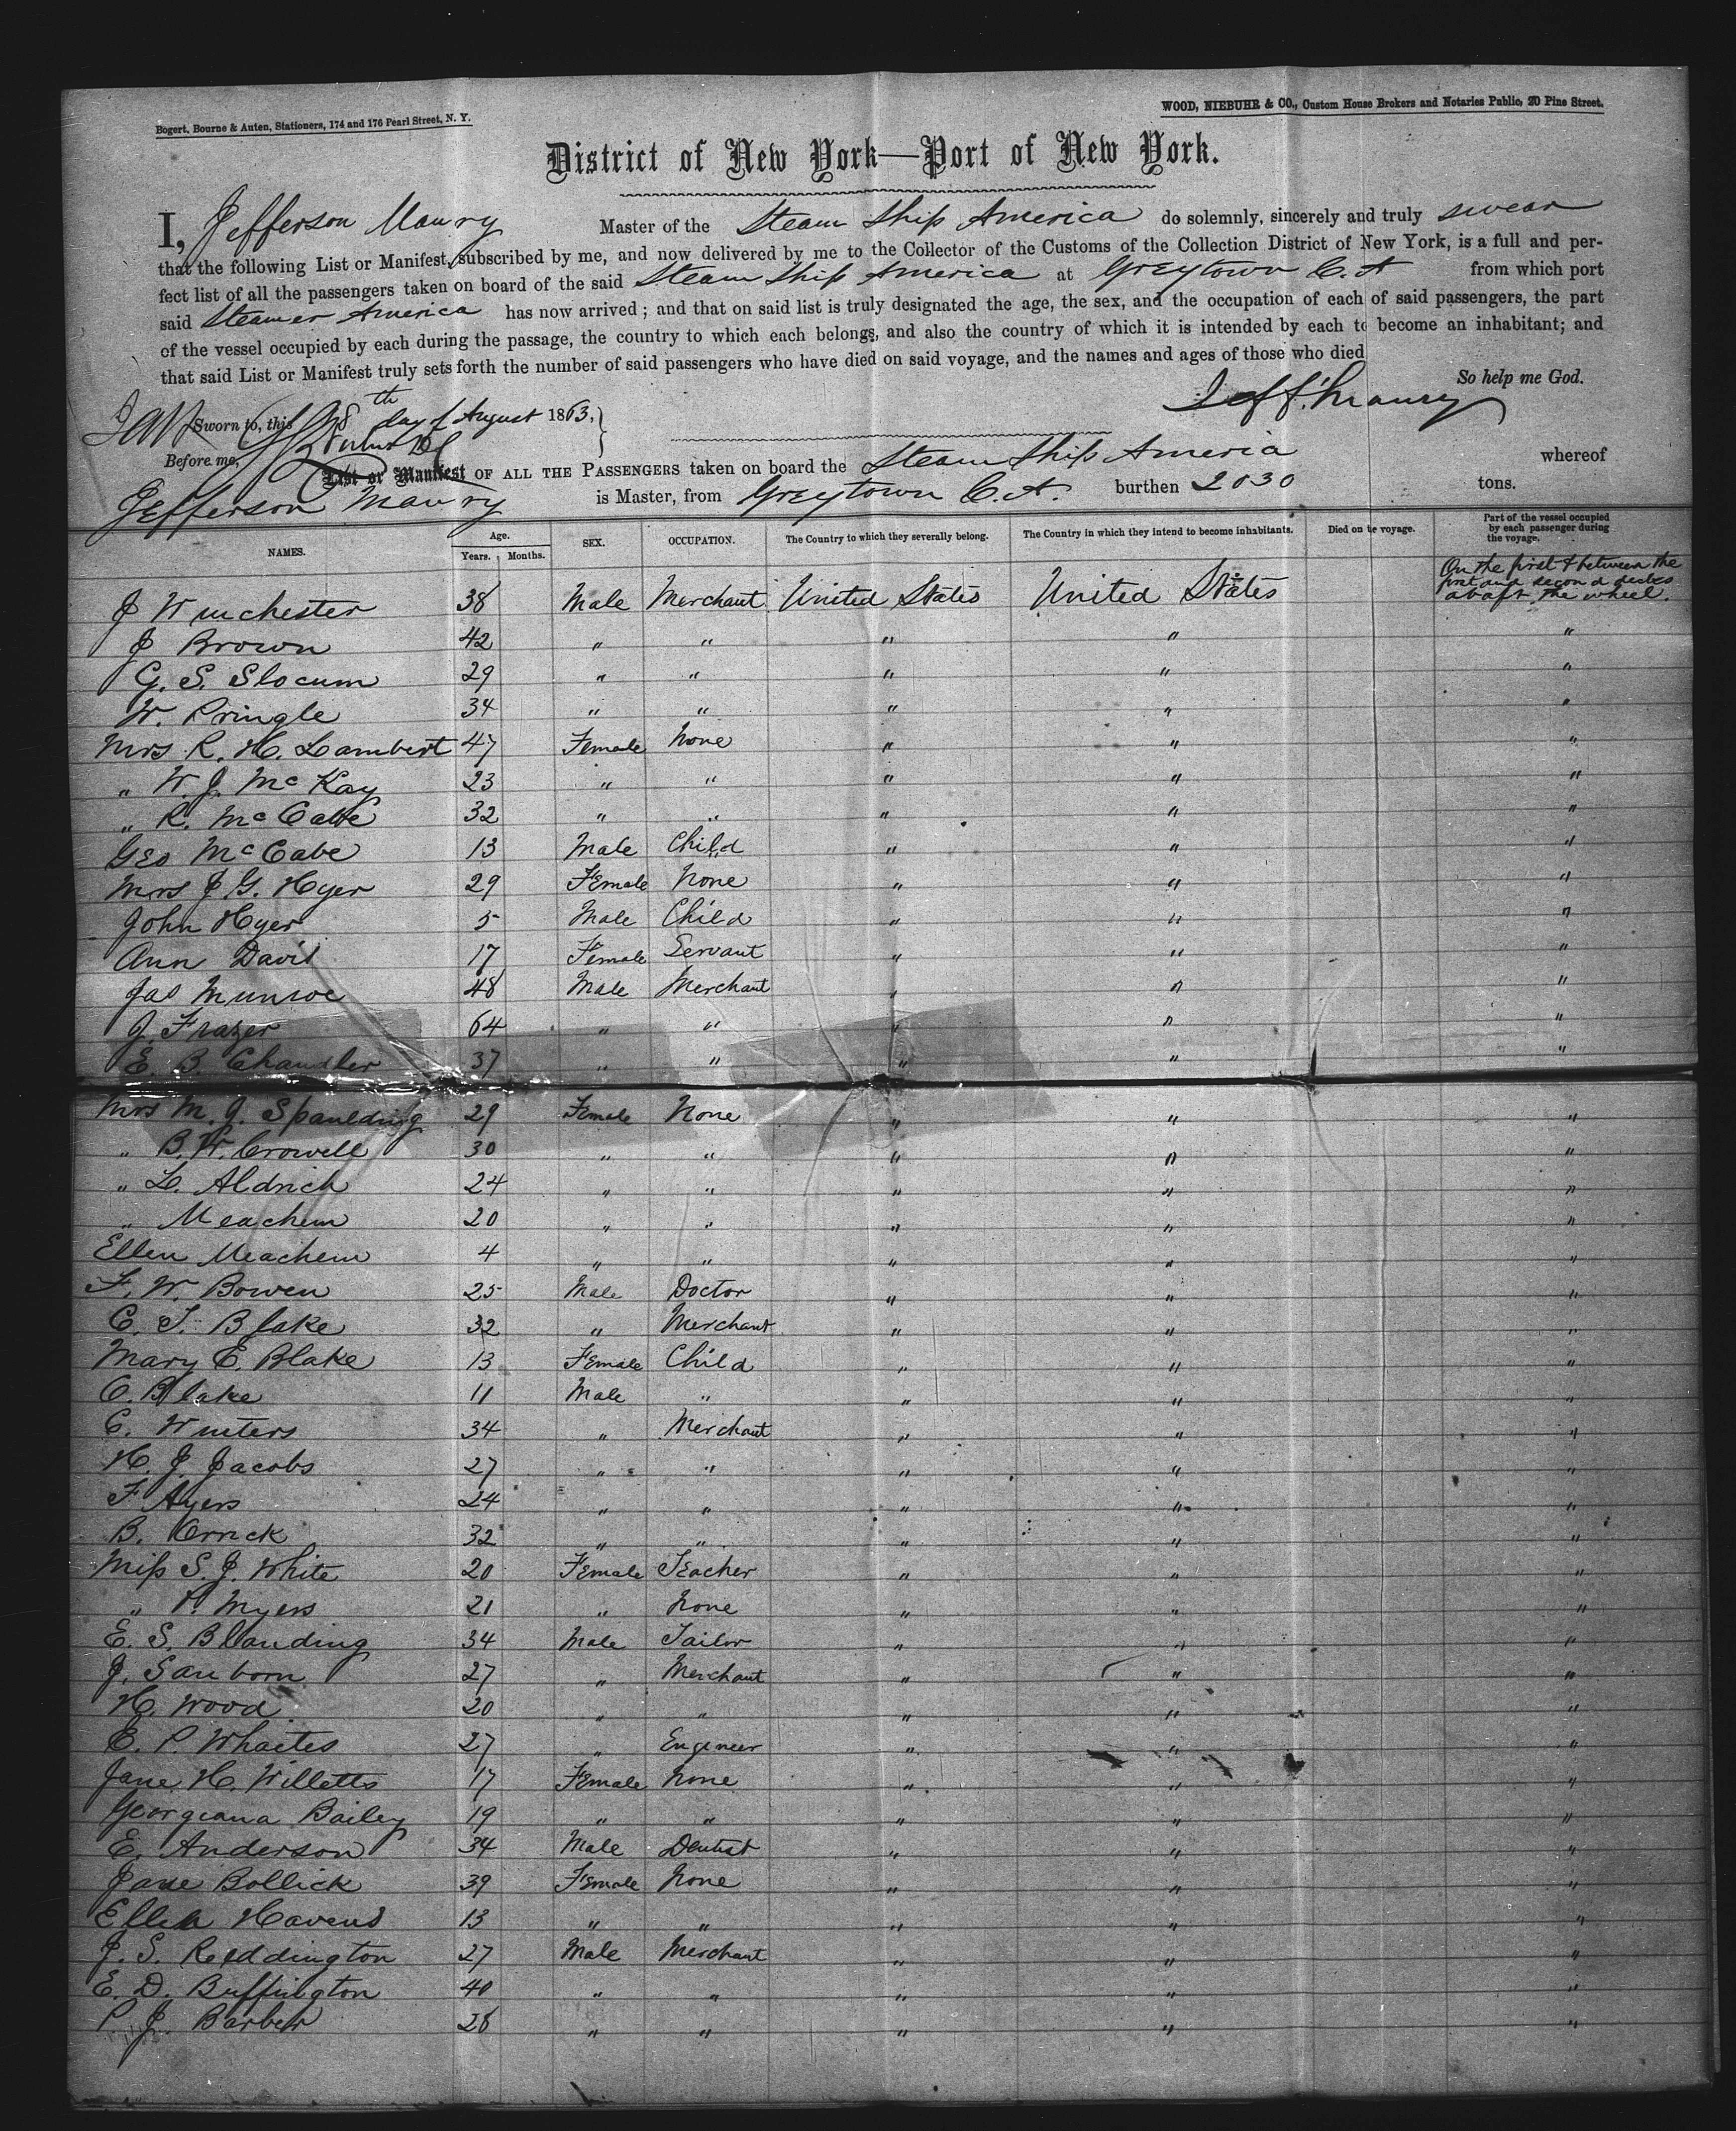 Bogert, Bourne & Auten, Stationers, 174 and 176 Pearl Street, N. Y.
WOOD, NIEBUHR & CO., Custom House Brokers and Notaries Public, 20 Pine Street.
District of New York—Port of New York.
I, Jefferson Maury Master of the Steam Ship America do solemnly, sincerely and truly swear
that the following List or Manifest, subscribed by me, and now delivered by me to the Collector of the Customs of the Collection District of New York, is a full and per-
fect list of all the passengers taken on board of the said Steam Ship America at Greytown C. A from which port
said Steamer America has now arrived; and that on said list is truly designated the age, the sex, and the occupation of each of said passengers, the part
of the vessel occupied by each during the passage, the country to which each belongs, and also the country of which it is intended by each to become an inhabitant; and
that said List or Manifest truly sets forth the number of said passengers who have died on said voyage, and the names and ages of those who died
So help me God.
Jeff. Maury
Sworn to, this 28th day of August 1863,
Before me,
List or Manifest OF ALL THE PASSENGERS taken on board the Steam Ship America whereof
Jefferson Maury is Master, from Greytown C. A. burthen 2030 tons.
NAMES. Age. Years. Months. SEX. OCCUPATION. The Country to which they severally belong. The Country in which they intend to become inhabitants. Died on the voyage. Part of the vessel occupied by each passenger during the voyage.
J Winchester 38 Male Merchant United States United States On the first & between the first and second decks abaft the wheel.
J Brown 42 " " " " "
G. S. Slocum 29 " " " " "
W. Pringle 34 " " " " "
Mrs R. H. Lambert 47 Female None " " "
" W. J. McKay 23 " " " " "
" R. McCabe 32 " " " " "
Geo McCabe 13 Male Child " " "
Mrs J G. Hyer 29 Female None " " "
John Hyer 5 Male Child " " "
Ann Davis 17 Female Servant " " "
Jas Munroe 48 Male Merchant " " "
J. Frazer 64 " " " " "
E. B. Chandler 37 " " " " "
Mrs M. J. Spaulding 29 Female None " " "
" B. W. Crowell 30 " " " " "
" L. Aldrich 24 " " " " "
" Meachem 20 " " " " "
Ellen Meachem 4 " " " " "
F. W. Bowen 25 Male Doctor " " "
C. T. Blake 32 " Merchant " " "
Mary E. Blake 13 Female Child " " "
C. Blake 11 Male " " " "
C. Winters 34 " Merchant " " "
H. J. Jacobs 27 " " " " "
F Ayers 24 " " " " "
B. Orrick 32 " " " " "
Miss S. J. White 20 Female Teacher " " "
" P. Myers 21 " None " " "
E. S. Blanding 34 Male Tailor " " "
J. Sanborn 27 " Merchant " " "
H. Wood 20 " " " " "
E. P. Whaites 27 " Engineer " " "
Jane H. Willetts 17 Female None " " "
Georgiana Bailey 19 " " " " "
E. Anderson 34 Male Dentist " " "
Jane Bollick 39 Female None " " "
Ellen Havens 13 " " " " "
J. S. Reddington 27 Male Merchant " " "
E. D. Buffington 40 " " " " "
P. J. Barber 28 " " " " "